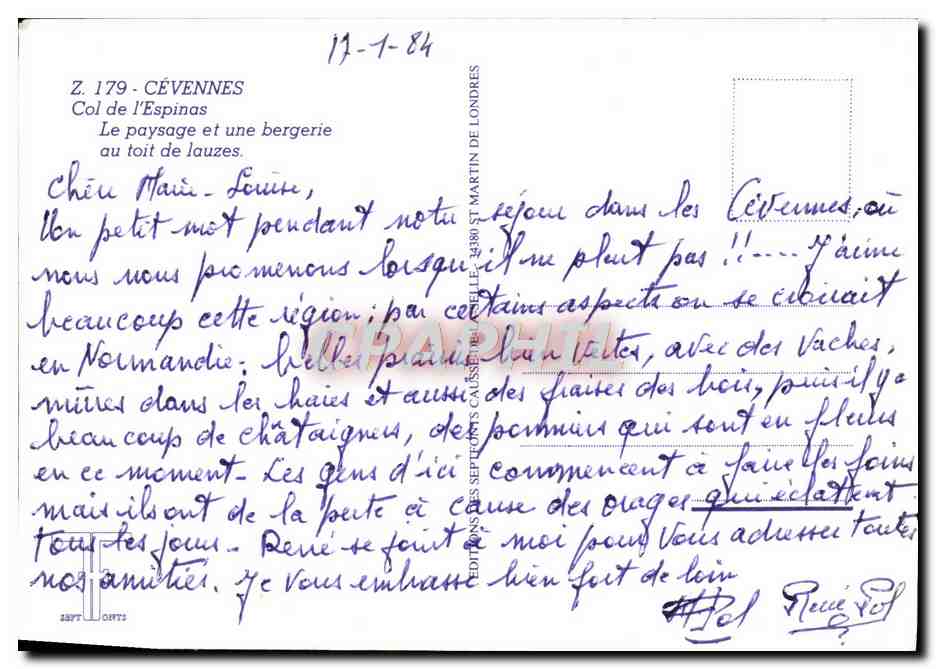 17-1-84
Z. 179 - CÉVENNES
Col de l'Espinas
Le paysage et une bergerie
au toit de lauzes.
Chère Marie-Louise,
Un petit mot pendant notre séjour dans les Cévennes, où
nous nous promenons lorsqu'il ne pleut pas !!---- J'aime
beaucoup cette région; par certains aspects on se croirait
en Normandie: belles prairies bien vertes, avec des vaches,
mûres dans les haies et aussi des fraises des bois, puis il y a
beaucoup de châtaigniers, des pommiers qui sont en fleurs
en ce moment - Les gens d'ici commencent à faire les foins
mais ils ont de la perte à cause des orages qui éclattent
tous les jours - René se joint à moi pour vous adresser toutes
nos amitiés. Je vous embrasse bien fort de loin
Pol René Pol
EDITIONS LES SEPT-FONTS CAUSSE DE LA SELLE - 34380 ST MARTIN DE LONDRES
SEPT FONTS
CPAPHIL